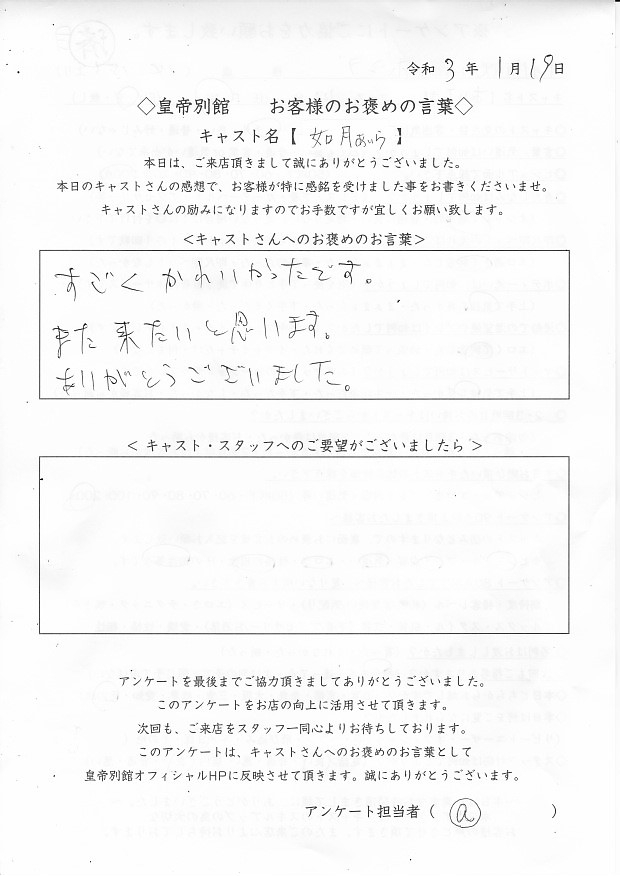 令和 3 年 1 月 19 日
◇皇帝別館　お客様のお褒めの言葉◇
キャスト名【 如月あいら 】
本日は、ご来店頂きまして誠にありがとうございました。
本日のキャストさんの感想で、お客様が特に感銘を受けました事をお書きくださいませ。
キャストさんの励みになりますのでお手数ですが宜しくお願い致します。
<キャストさんへのお褒めのお言葉>
すごくかわいかったです。
また来たいと思います。
ありがとうございました。
< キャスト・スタッフへのご要望がございましたら >
アンケートを最後までご協力頂きましてありがとうございました。
このアンケートをお店の向上に活用させて頂きます。
次回も、ご来店をスタッフ一同心よりお待ちしております。
このアンケートは、キャストさんへのお褒めのお言葉として
皇帝別館オフィシャルHPに反映させて頂きます。誠にありがとうございます。
アンケート担当者（ a ）